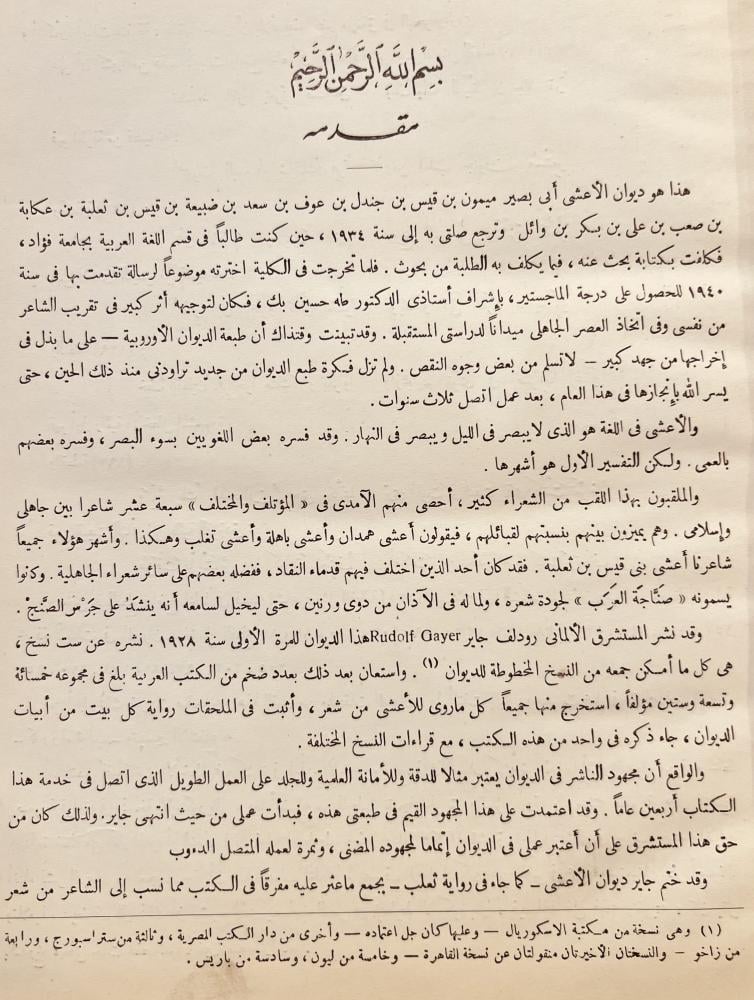 بِسْمِ اللَّهِ الرَّحْمَنِ الرَّحِيمِ
مقدمه
هذا هو ديوان الأعشى أبى بصير ميمون بن قيس بن جندل بن عوف بن سعد بن ضبيعة بن قيس بن ثعلبة بن عكابة
بن صعب بن على بن بكر بن وائل وترجع صلتى به إلى سنة ١٩٣٤ ، حين كنت طالباً فى قسم اللغة العربية بجامعة فؤاد ،
فكلفت بكتابة بحث عنه ، فيما يكلف به الطلبة من بحوث . فلما تخرجت فى الكلية اخترته موضوعاً لرسالة تقدمت بها فى سنة
١٩٤٠ للحصول على درجة الماجستير ، بإشراف أستاذى الدكتور طه حسين بك ، فكان لتوجيهه أثر كبير فى تقريب الشاعر
من نفسى وفى اتخاذ العصر الجاهلى ميداناً لدراستى المستقبلة . وقد تبينت وقتذاك أن طبعة الديوان الأوروبية — على ما بذل فى
إخراجها من جهد كبير — لا تسلم من بعض وجوه النقص . ولم تزل فكرة طبع الديوان من جديد تراودنى منذ ذلك الحين ، حتى
يسر الله بإنجازها فى هذا العام ، بعد عمل اتصل ثلاث سنوات .
والأعشى فى اللغة هو الذى لا يبصر فى الليل ويبصر فى النهار . وقد فسره بعض اللغويين بسوء البصر ، وفسره بعضهم
بالعمى . ولكن التفسير الأول هو أشهرها .
والملقبون بهذا اللقب من الشعراء كثير ، أحصى منهم الآمدى فى « المؤتلف والمختلف » سبعة عشر شاعرا بين جاهلى
وإسلامى . وهم يميزون بينهم بنسبتهم لقبائلهم ، فيقولون أعشى همدان وأعشى باهلة وأعشى تغلب وهكذا . وأشهر هؤلاء جميعاً
شاعرنا أعشى بنى قيس بن ثعلبة . فقد كان أحد الذين اختلف فيهم قدماء النقاد ، ففضله بعضهم على سائر شعراء الجاهلية . وكانوا
يسمونه « صَنَّاجَة العَرَب » لجودة شعره ، ولما له فى الآذان من دوى ورنين ، حتى ليخيل لسامعه أنه ينشَد على جَرْس الصَّنج .
وقد نشر المستشرق الألمانى رودلف جاير Rudolf Gayer هذا الديوان للمرة الأولى سنة ١٩٢٨ . نشره عن ست نسخ ،
هى كل ما أمكن جمعه من النسخ المخطوطة للديوان (١) . واستعان بعد ذلك بعدد ضخم من الكتب العربية بلغ فى مجموعه خمسمائة
وتسعة وستين مؤلفاً ، استخرج منها جميعاً كل ماروى للأعشى من شعر ، وأثبت فى الملحقات رواية كل بيت من أبيات
الديوان ، جاء ذكره فى واحد من هذه الكتب ، مع قراءات النسخ المختلفة .
والواقع أن مجهود الناشر فى الديوان يعتبر مثالا للدقة وللأمانة العلمية وللجلد على العمل الطويل الذى اتصل فى خدمة هذا
الكتاب أربعين عاماً . وقد اعتمدت على هذا المجهود القيم فى طبعتى هذه ، فبدأت عملى من حيث انتهى جاير . ولذلك كان من
حق هذا المستشرق على أن أعتبر عملى فى الديوان إتماما لمجهوده المضنى ، وثمرة لعمله المتصل الدءوب
وقد ختم جاير ديوان الأعشى — كما جاء فى رواية ثعلب — بجمع ماعثر عليه مفرقاً فى الكتب مما نسب إلى الشاعر من شعر
(١) وهى نسخة من مكتبة الاسكوريال — وعليها كان جل اعتماده — وأخرى من دار الكتب المصرية ، وثالثة من ستراسبورج ، ورابعة
من زاخو — والنسختان الأخيرتان منقولتان عن نسخة القاهرة — وخامسة من ليون ، وسادسة من باريس .